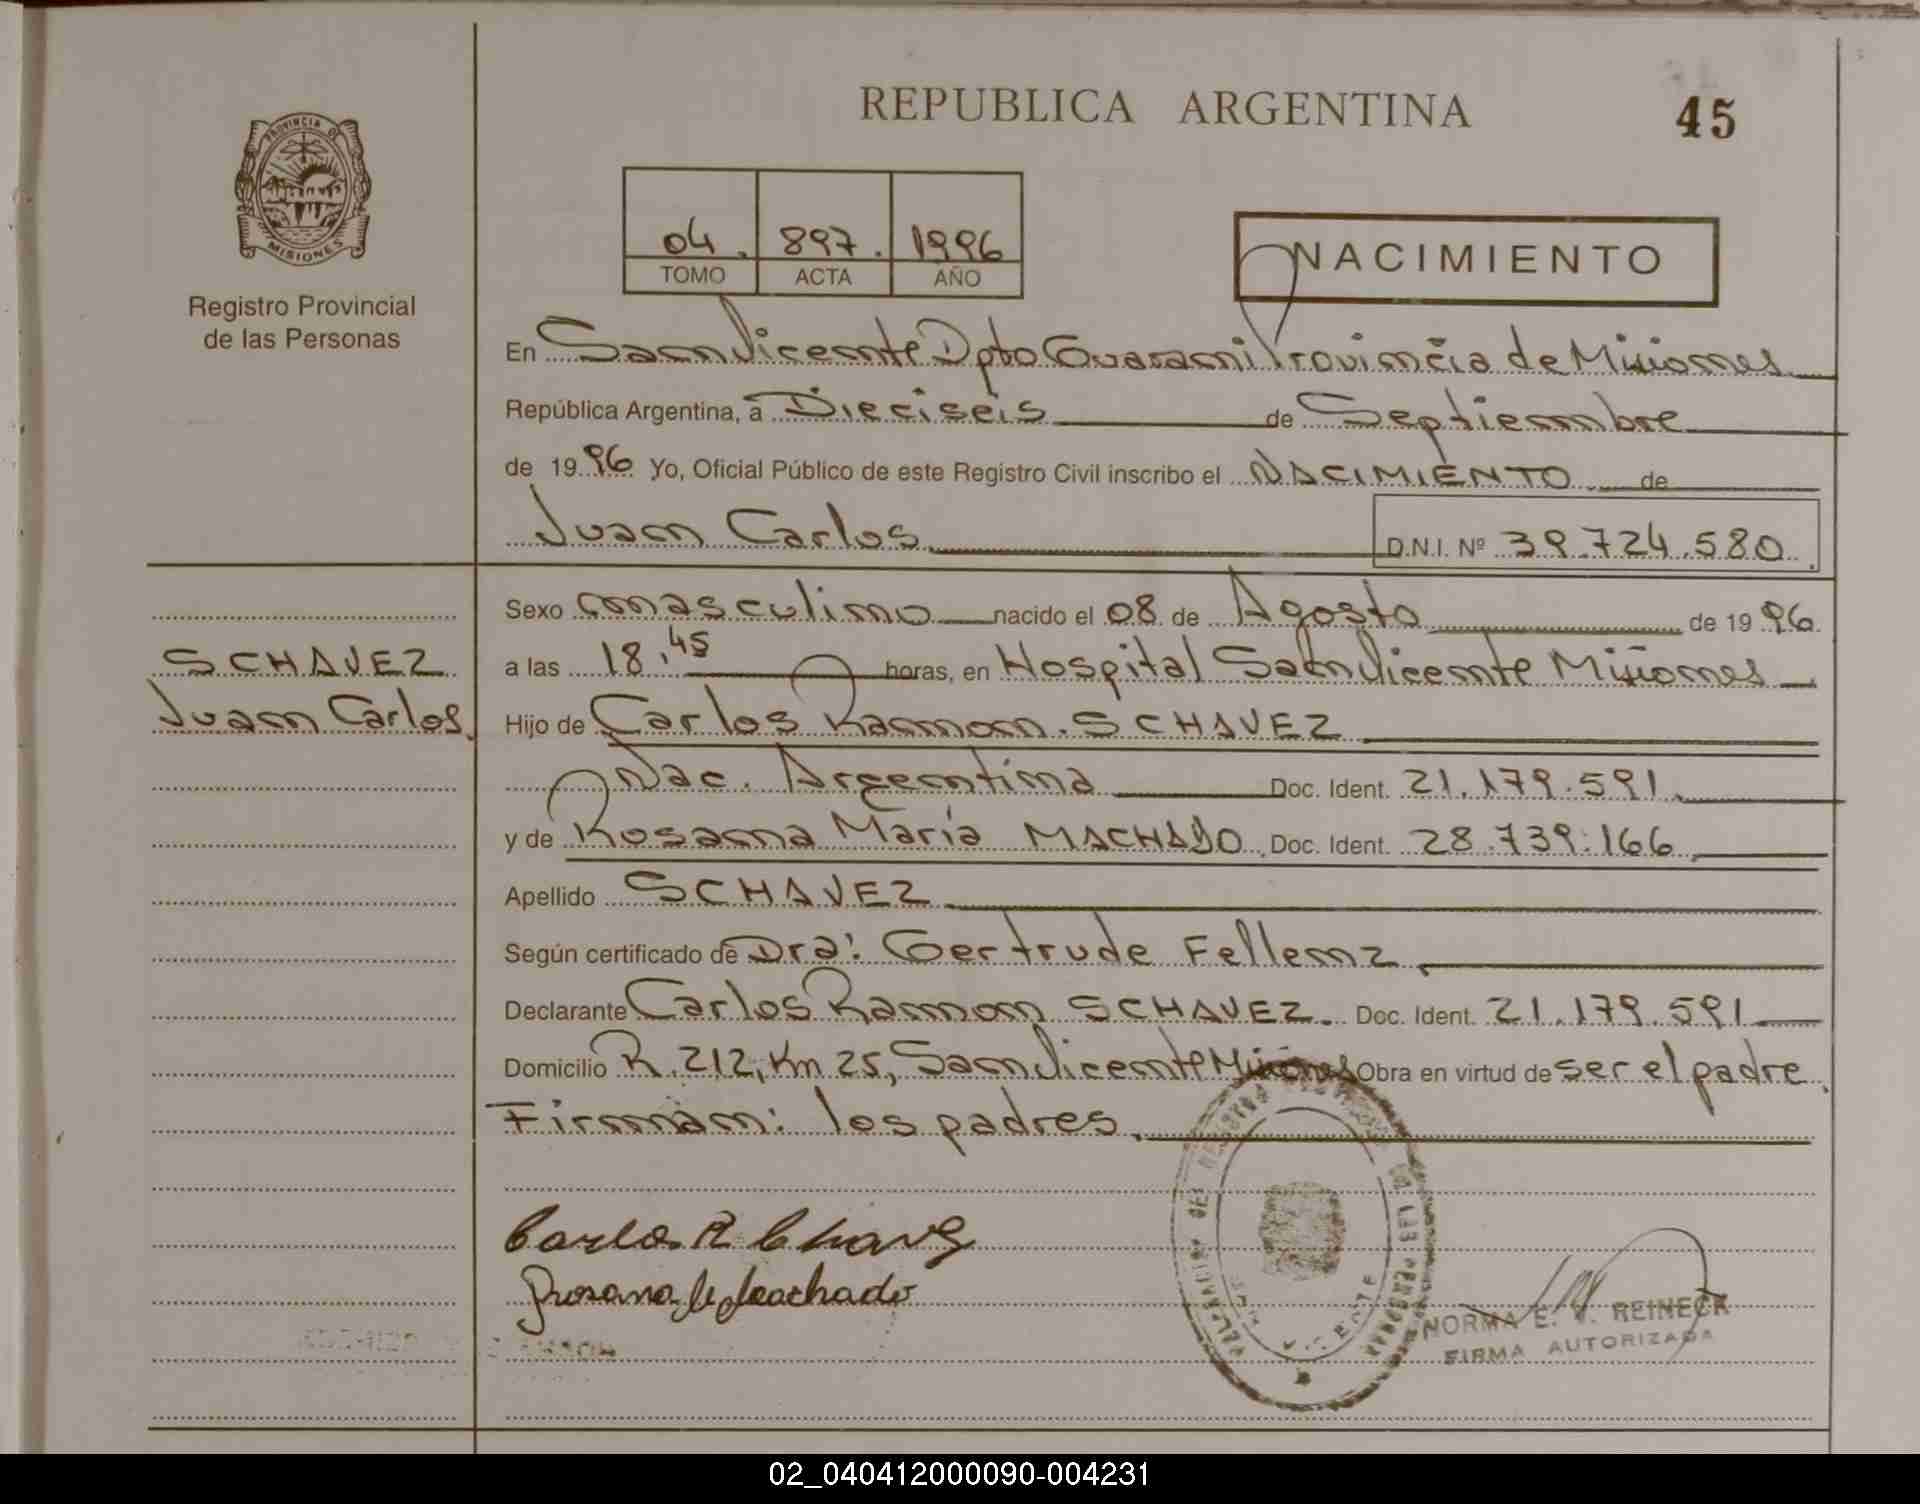 REPUBLICA ARGENTINA
45
PROVINCIA DE
MISIONES
Registro Provincial
de las Personas
04. 897. 1996
TOMO ACTA AÑO
NACIMIENTO
En San Vicente Dpto Guarani Provincia de Misiones
República Argentina, a Dieciseis de Septiembre
de 1996 Yo, Oficial Público de este Registro Civil inscribo el NACIMIENTO de
Juan Carlos D.N.I. Nº 39.724.580.
Sexo masculino nacido el 08 de Agosto de 1996.
SCHAVEZ
Juan Carlos.
a las 18,45 horas, en Hospital San Vicente Misiones
Hijo de Carlos Ramon. SCHAVEZ
Nac. Argentina Doc. Ident. 21.179.591.
y de Rosana María MACHADO. Doc. Ident. 28.739.166.
Apellido SCHAVEZ
Según certificado de Dra: Gertrude Fellenz.
Declarante Carlos Ramon SCHAVEZ. Doc. Ident. 21.179.591
Domicilio R. 212, Km 25, San Vicente Misiones Obra en virtud de ser el padre.
Firman: los padres.
Carlos R Chavez
Rosana M Machado
NORMA E. V. REINECK
FIRMA AUTORIZADA
02_040412000090-004231